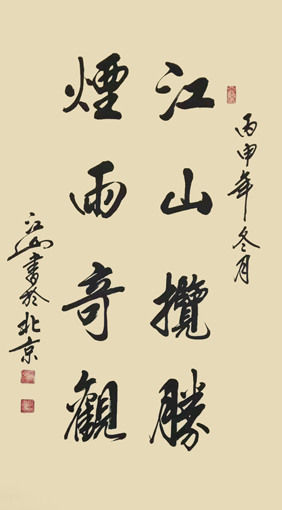 丙申年冬月
江山攬勝
煙雨奇觀
江山書於北京